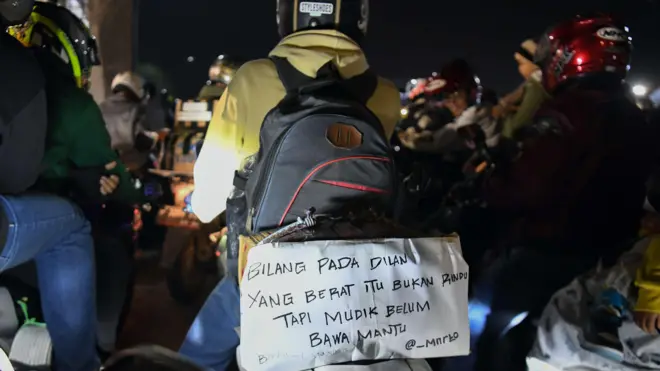 STYLESHOES
BILANG PADA DILAN
YANG BERAT ITU BUKAN RINDU
TAPI MUDIK BELUM
BAWA MANTU